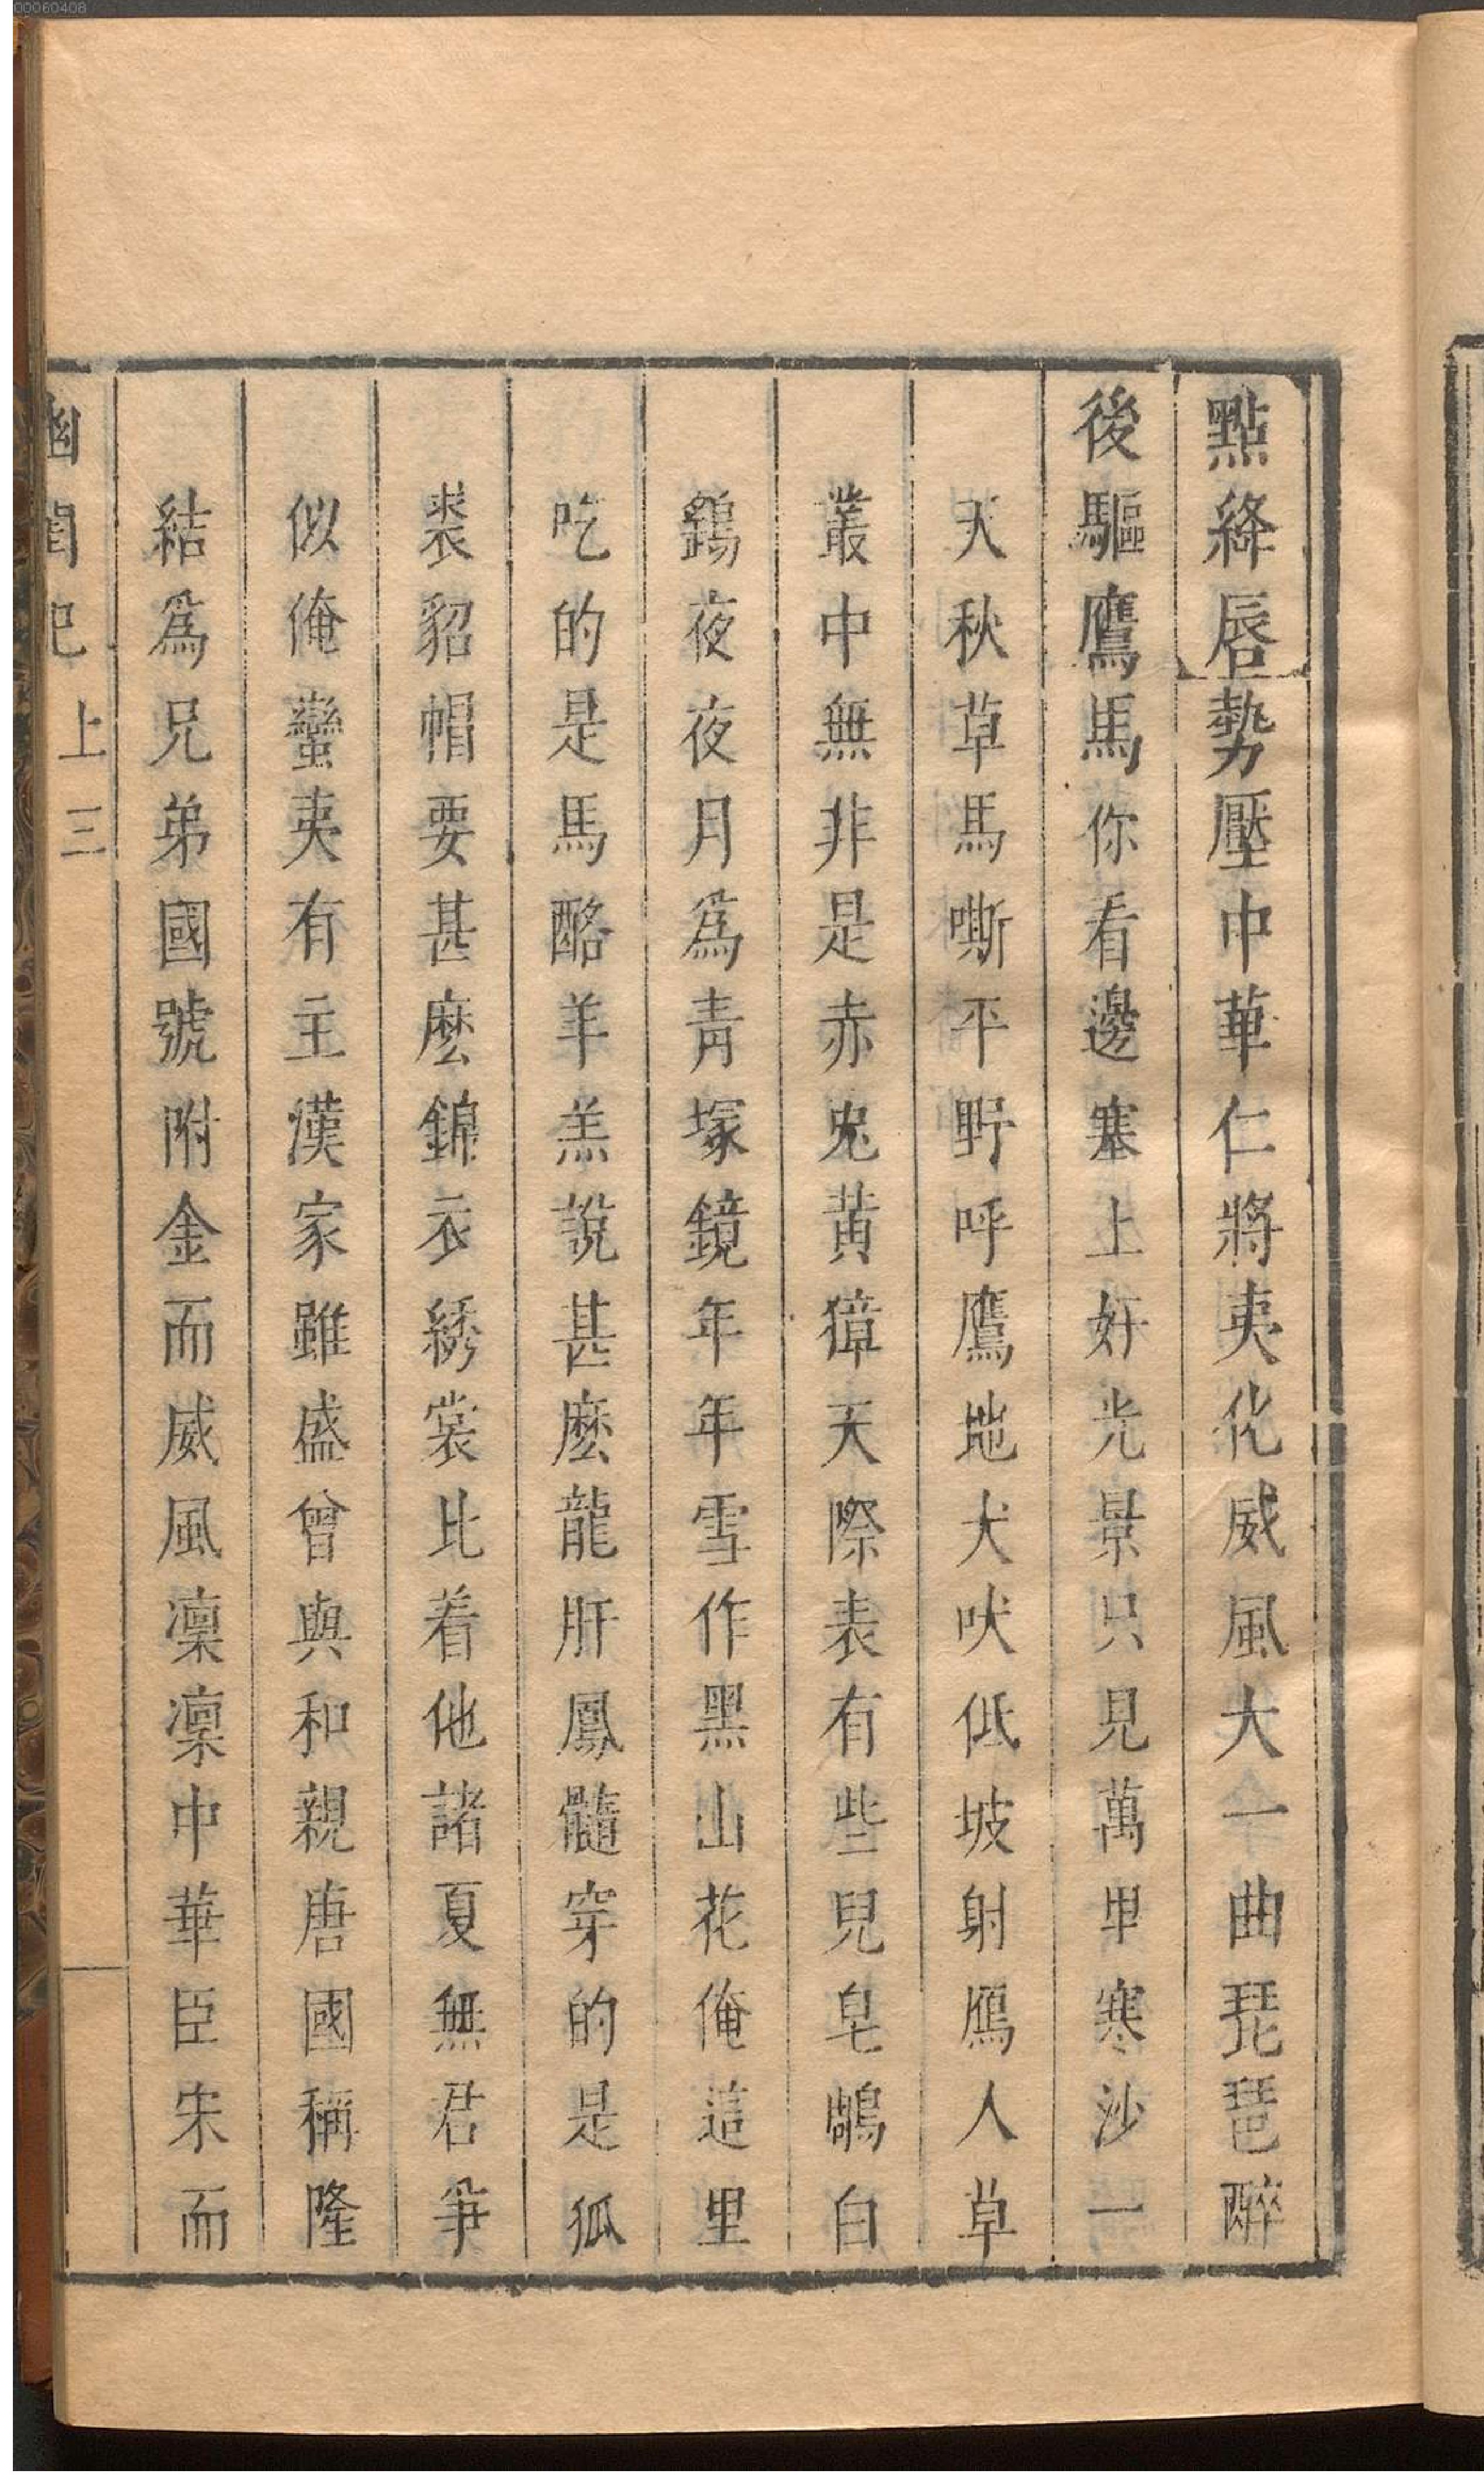 00060408
點絳唇勢壓中華仁將夷化威風大一曲琵琶醉
後驅鷹馬你看邊塞上好光景只見萬里寒沙一
天秋草馬嘶平野呼鷹地犬吠低坡射鴈人草
叢中無非是赤兔黃獐天際表有些兒皂鵰白
鷂夜夜月爲靑塚鏡年年雪作黑山花俺這里
吃的是馬酪羊羔說甚麽龍肝鳳髓穿的是狐
裘貂帽要甚麽錦衣綉裳比着他諸夏無君爭
似俺蠻夷有主漢家雖盛曾與和親唐國稱隆
結爲兄弟國號附金而威風凜凜中華臣宋而
幽閨記 上 三